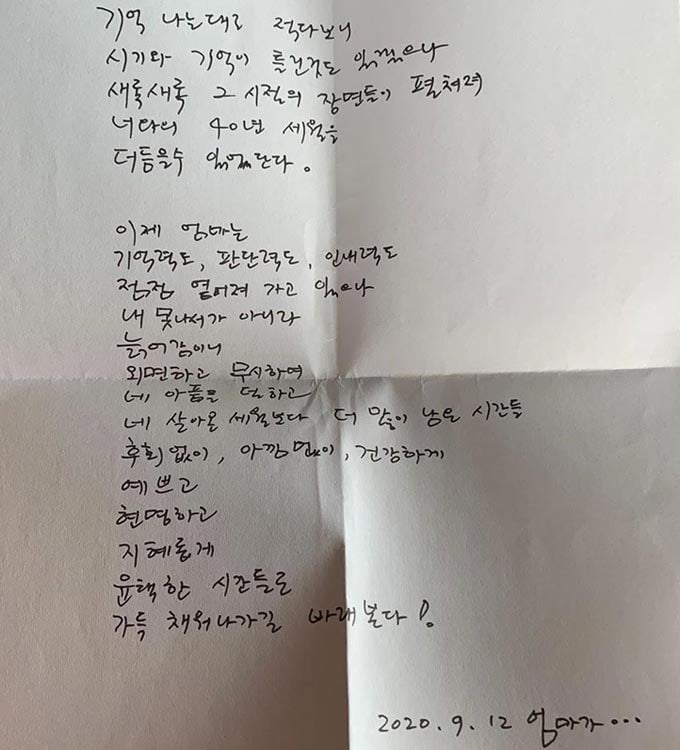 기억 나는대로 적다보니
시기와 기억이 틀린것도 있겠으나
새록새록 그 시절의 장면들이 펼쳐져
너와의 40년 세월을
더듬을수 있었단다.
이제 엄마는
기억력도, 판단력도, 인내력도
점점 옅어져 가고 있으나
내 못나서가 아니라
늙어감이니
외면하고 무시하여
네 아픔을 덜하고
네 살아온 세월보다 더 많이 남은 시간들
후회 없이, 아낌 없이, 건강하게
예쁘고
현명하고
지혜롭게
윤택한 시간들로
가득 채워나가길 바래본다!
2020. 9. 12 엄마가...